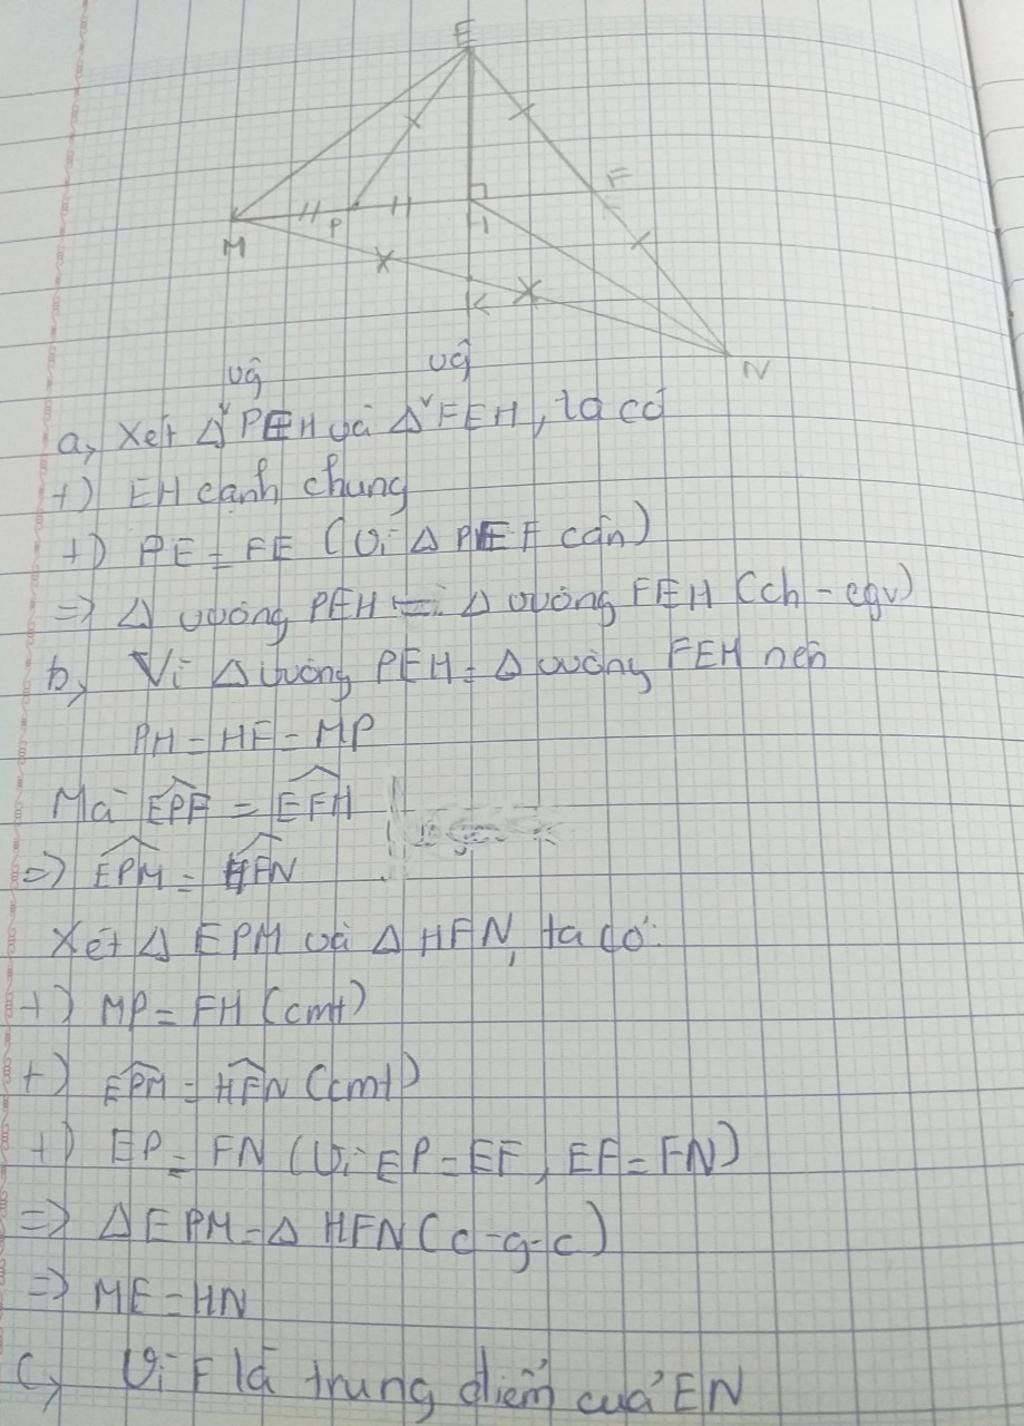 E
F
M
P
H
K
N
vg vg
a, Xét Δ PEH và Δ FEH, ta có
+) EH cạnh chung
+) PE = FE (Vì Δ PEF cân)
=> Δ vuông PEH = Δ vuông FEH (ch - cgv)
b, Vì Δ vuông PEH = Δ vuông FEH nên
PH = HF = MP
Mà EPF = EFH
=> EPM = HFN
Xét Δ EPM và Δ HFN, ta có:
+) MP = FH (cmt)
+) EPM = HFN (cmt)
+) EP = FN (Vì EP = EF, EF = FN)
=> Δ EPM = Δ HFN (c-g-c)
=> ME = HN
c, Vì F là trung điểm của EN